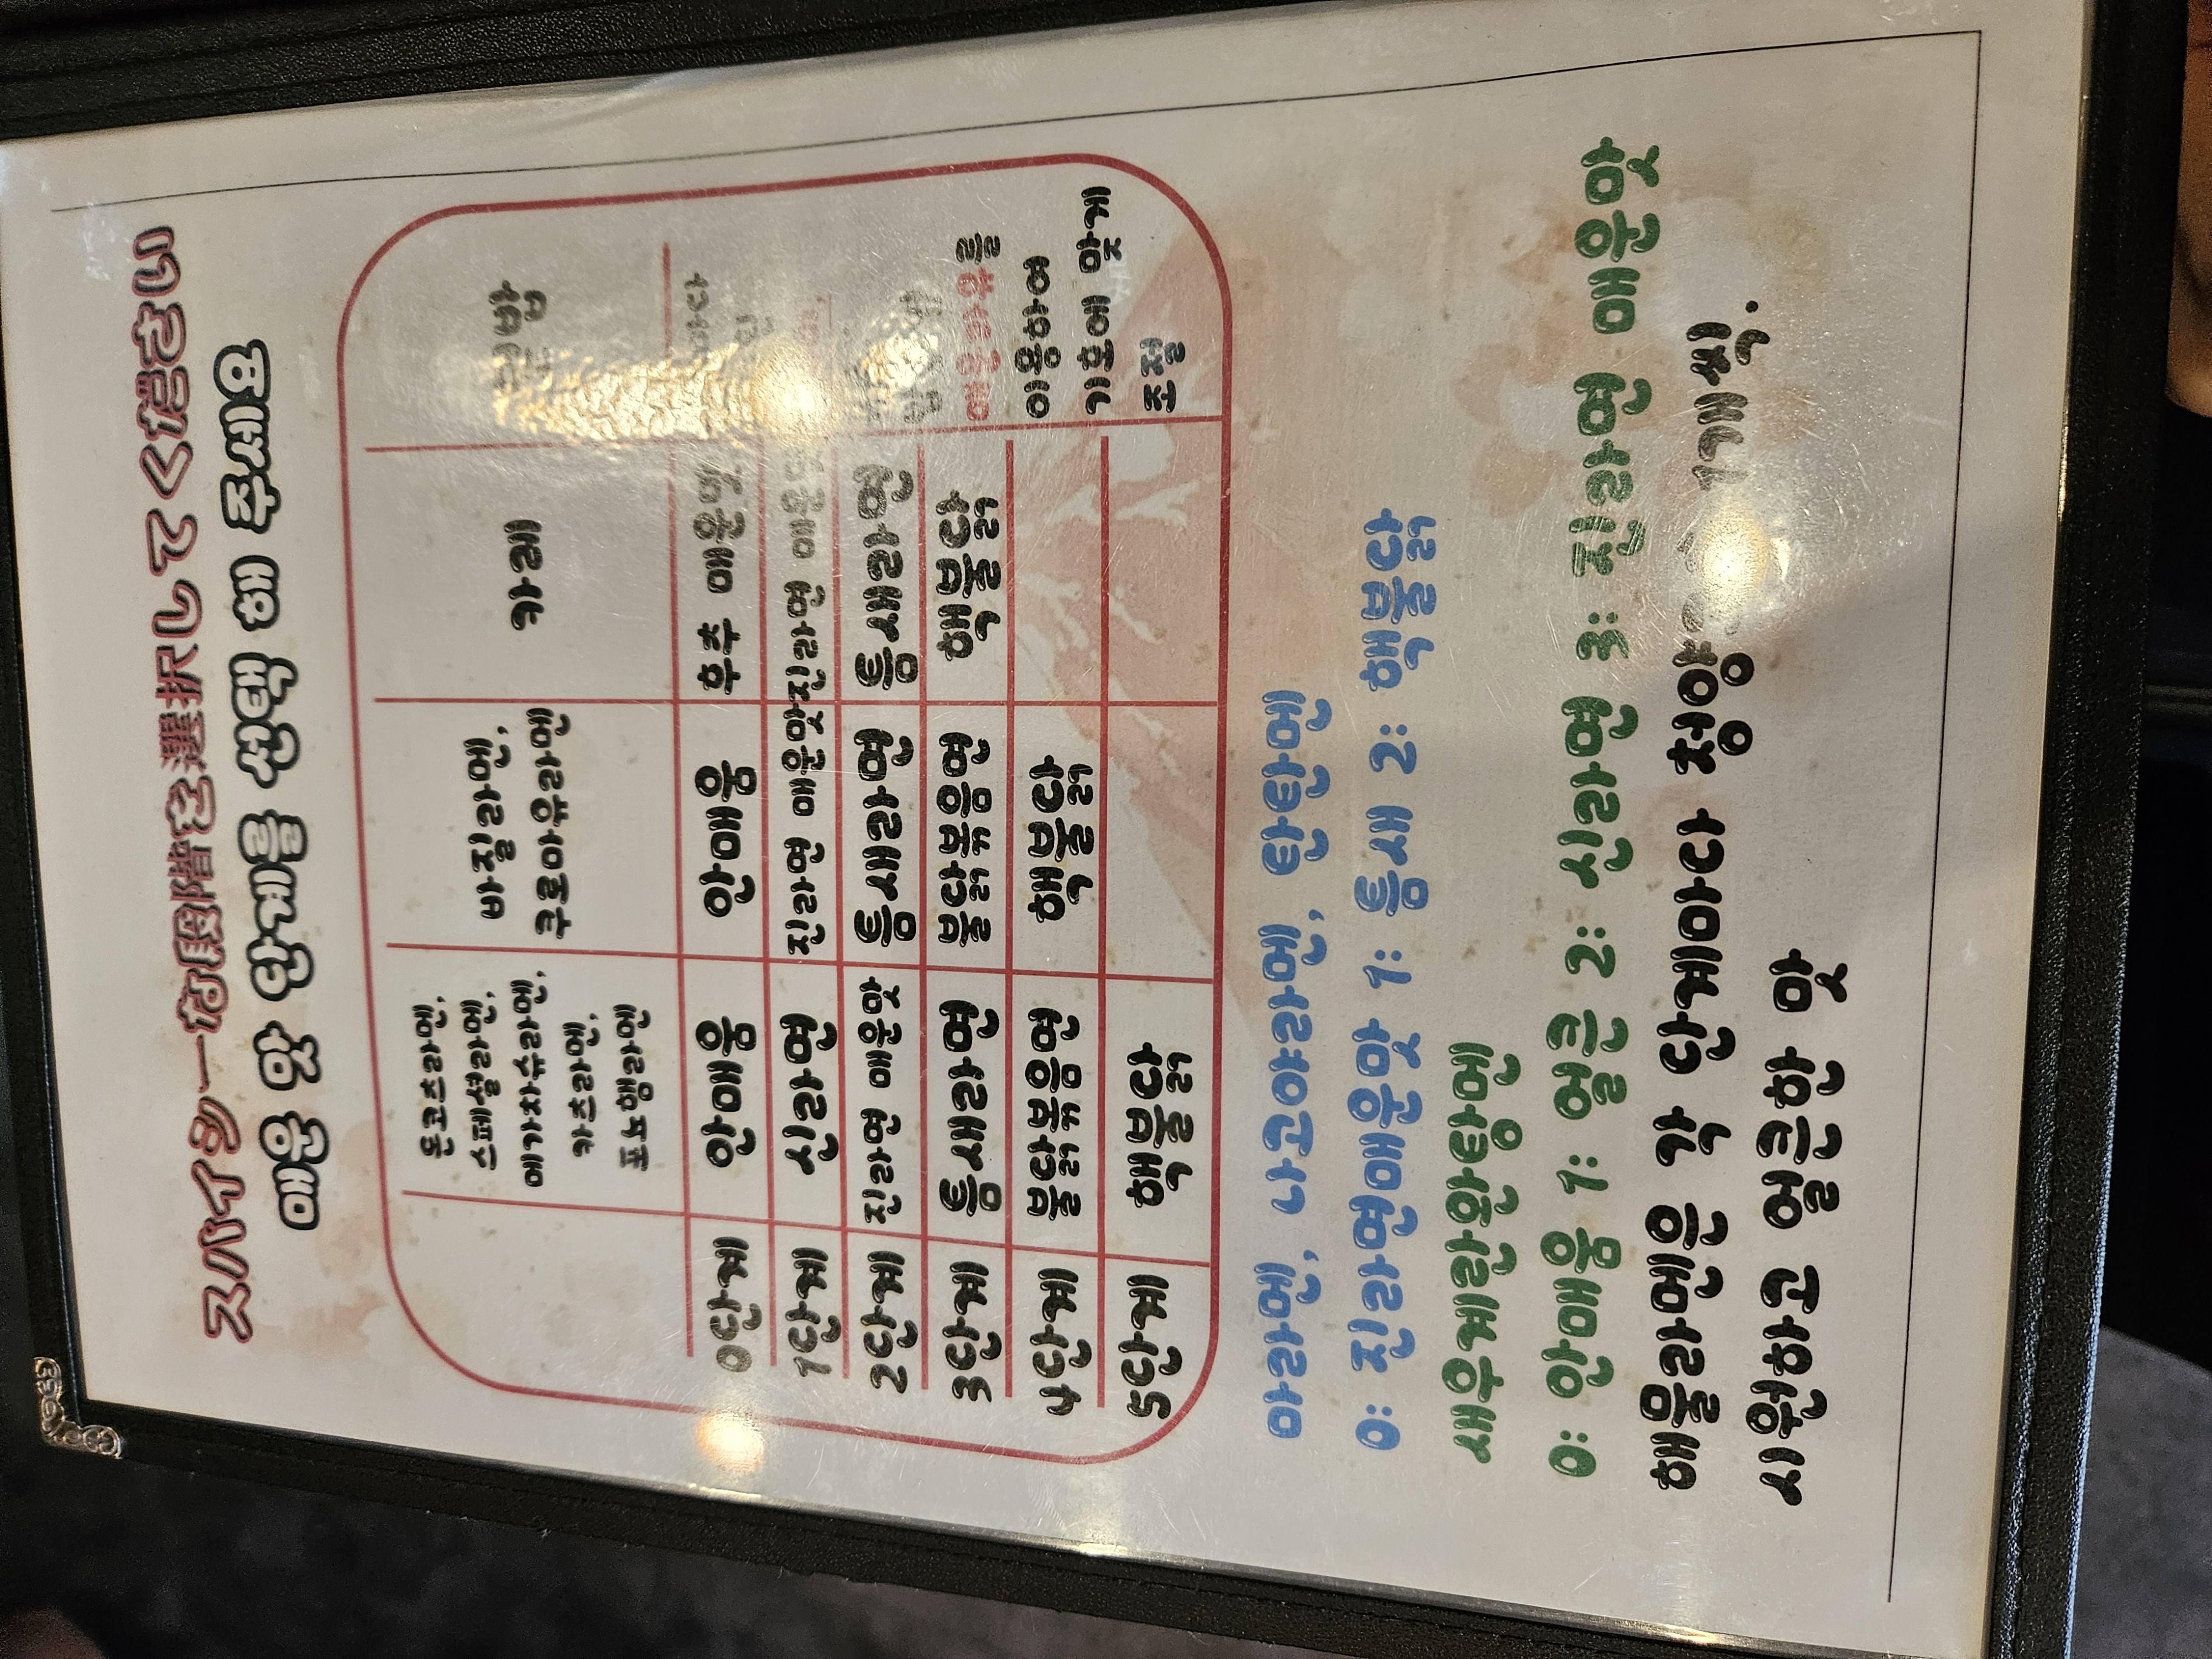 スパイシーな段階を選択してください
매운 맛 단계를 선택 해 주세요
돈코츠라멘,
스페셜라멘,
에나차슈라멘,
카츠라멘,
포모행라멘
바질라멘,
쿠로아유라멘
카레
0단계 안매움 안매움 후추 매운맛
1단계 신라면 진라면 매운맛 진라면 매운맛
2단계 진라면 매운맛 틈새라면 틈새라면
3단계 틈새라면 불닭볶음면 핵불닭
4단계 불닭볶음면 핵불닭
5단계 핵불닭
매운양념 를
이용하여
기호에 맞게
조절
아라멘, 나고야라멘, 탄탄멘
0: 진라면매운맛 1: 틈새 2: 핵불닭
새우계란완탕멘
0: 안매움 1: 얼큰 2: 신라면 3: 진라면 매운맛
해물라멘은 각 단계마다 청양 1개씩.
시원하고 얼큰한 맛